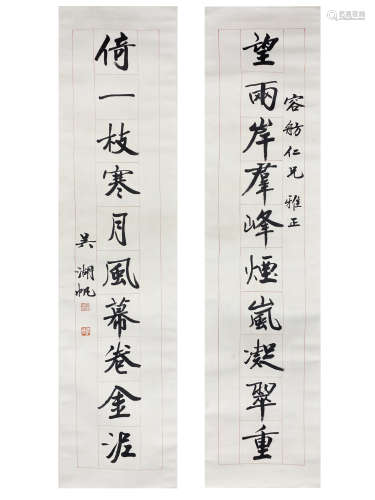 望兩岸羣峰煙嵐凝翠重
容舫仁兄 雅正
倚一枝寒月風幕卷金泥
吳湖帆